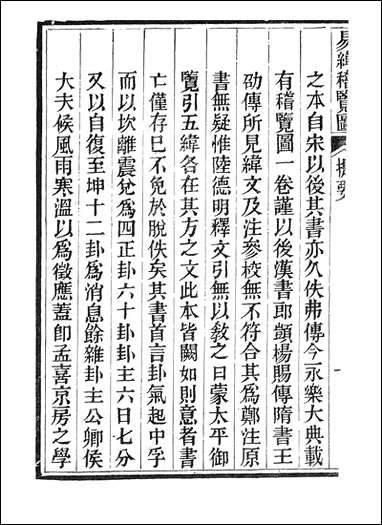 易緯稽覽圖 提要 一
之本自宋以後其書亦久佚弗傳今永樂大典載
有稽覽圖一卷謹以後漢書郎顗楊賜傳隋書王
劭傳所見緯文及注參校無不符合其為鄭注原
書無疑惟陸德明釋文引無以敎之曰蒙太平御
覽引五緯各在其方之文此本皆闕如則意者書
亡僅存已不免於脫佚矣其書首言卦氣起中孚
而以坎離震兌爲四正卦六十卦卦主六日七分
又以自復至坤十二卦爲消息餘雜卦主公卿侯
大夫候風雨寒溫以爲徵應蓋卽孟喜京房之學